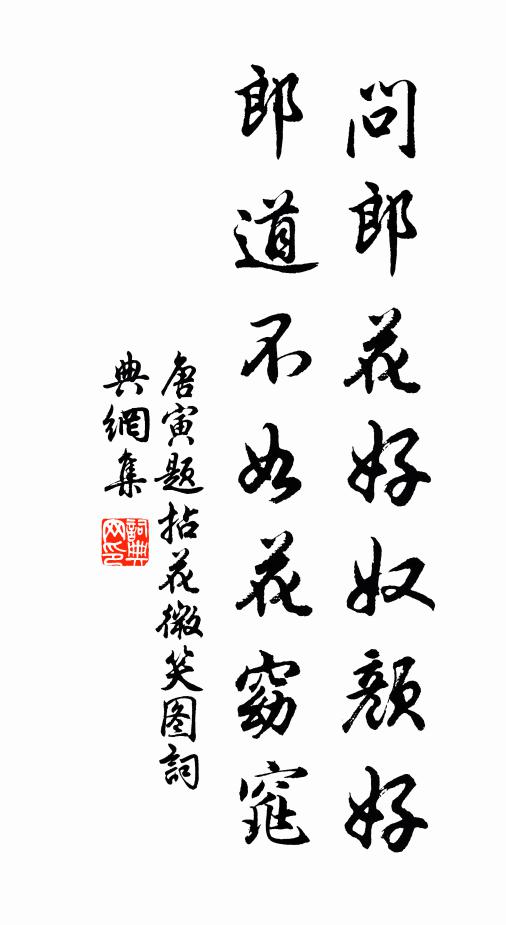 問郎花好奴顏好
郎道不如花窈窕
唐寅題拈花微笑图詞
典網集
詞典
网印